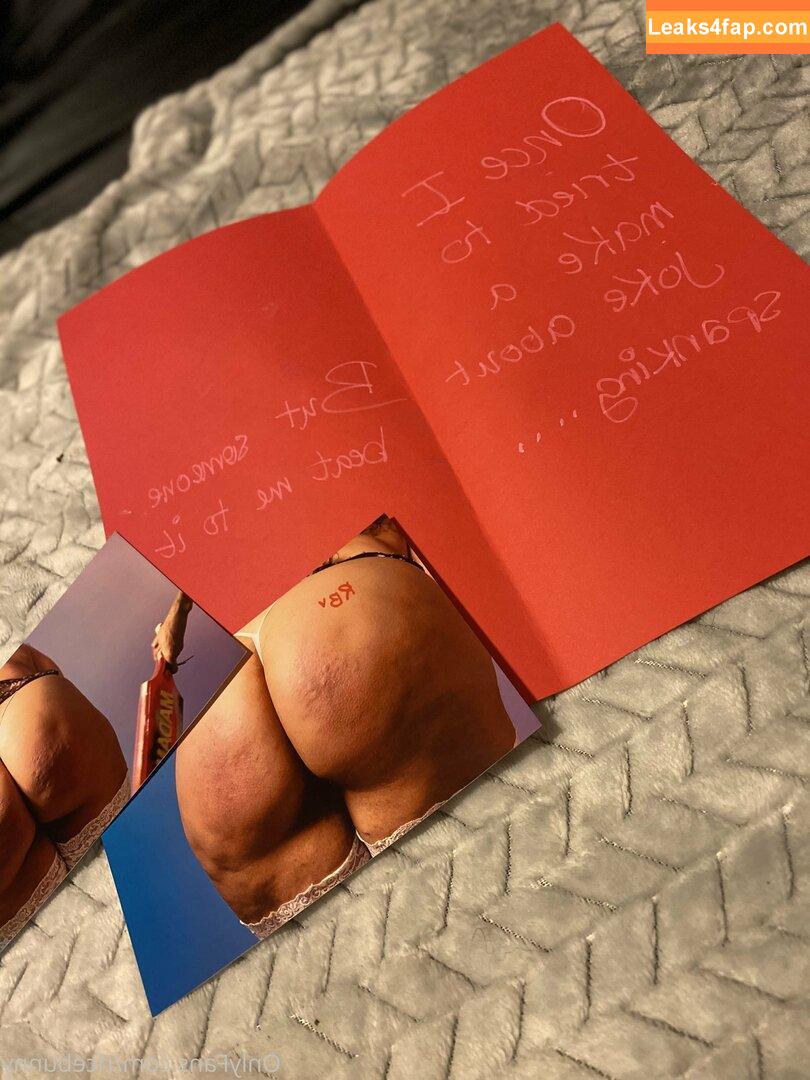 Leaks4fap.com
Once I
tried to
make a
joke about
spanking....
But
someone
beat me to it
RBv
MADAM
OnlyFans.com/ricebunny